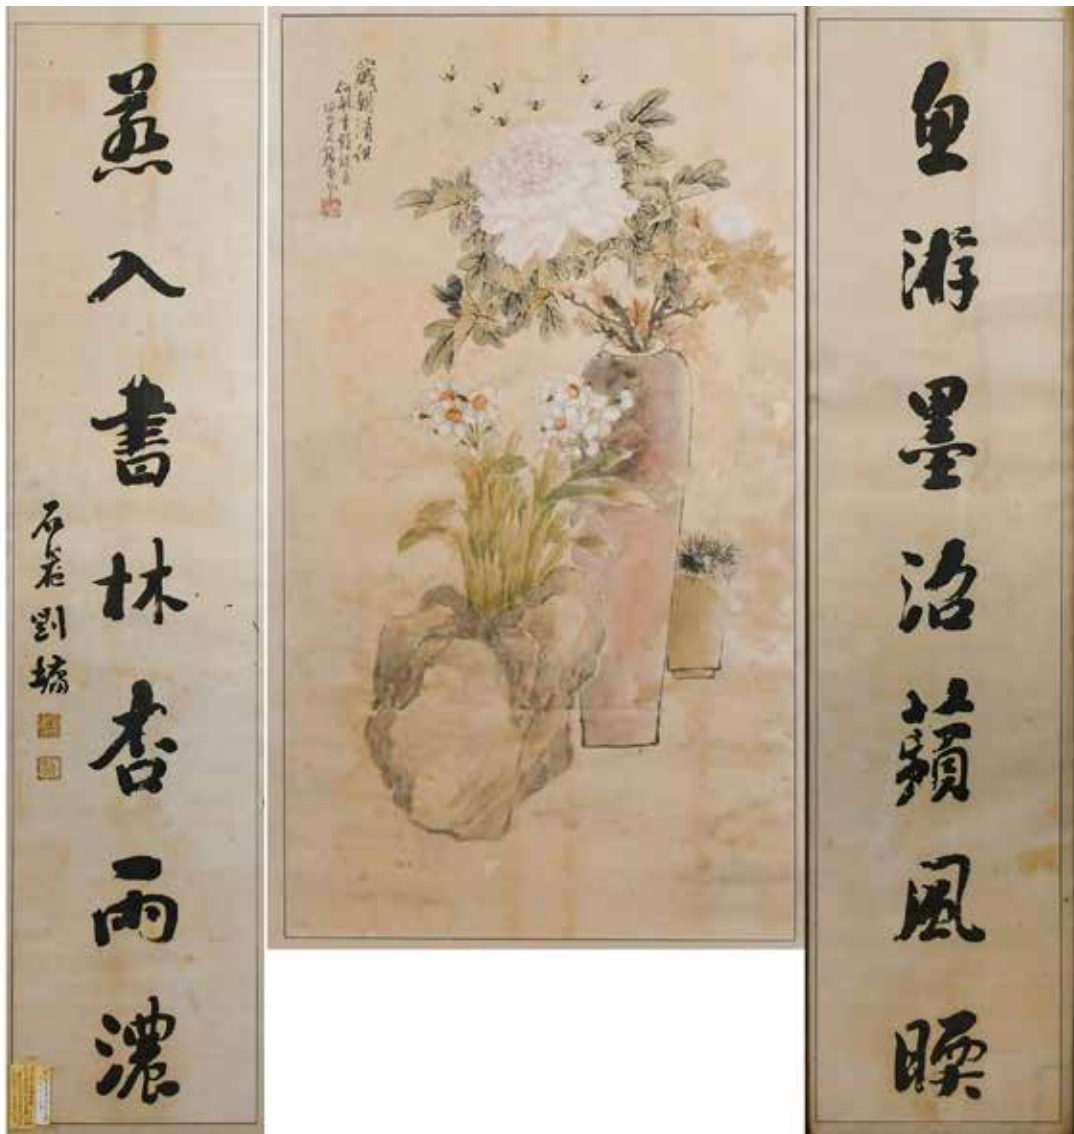 魚游墨沼蘋風暖
歲朝清供
燕入書林杏雨濃
石菴劉墉